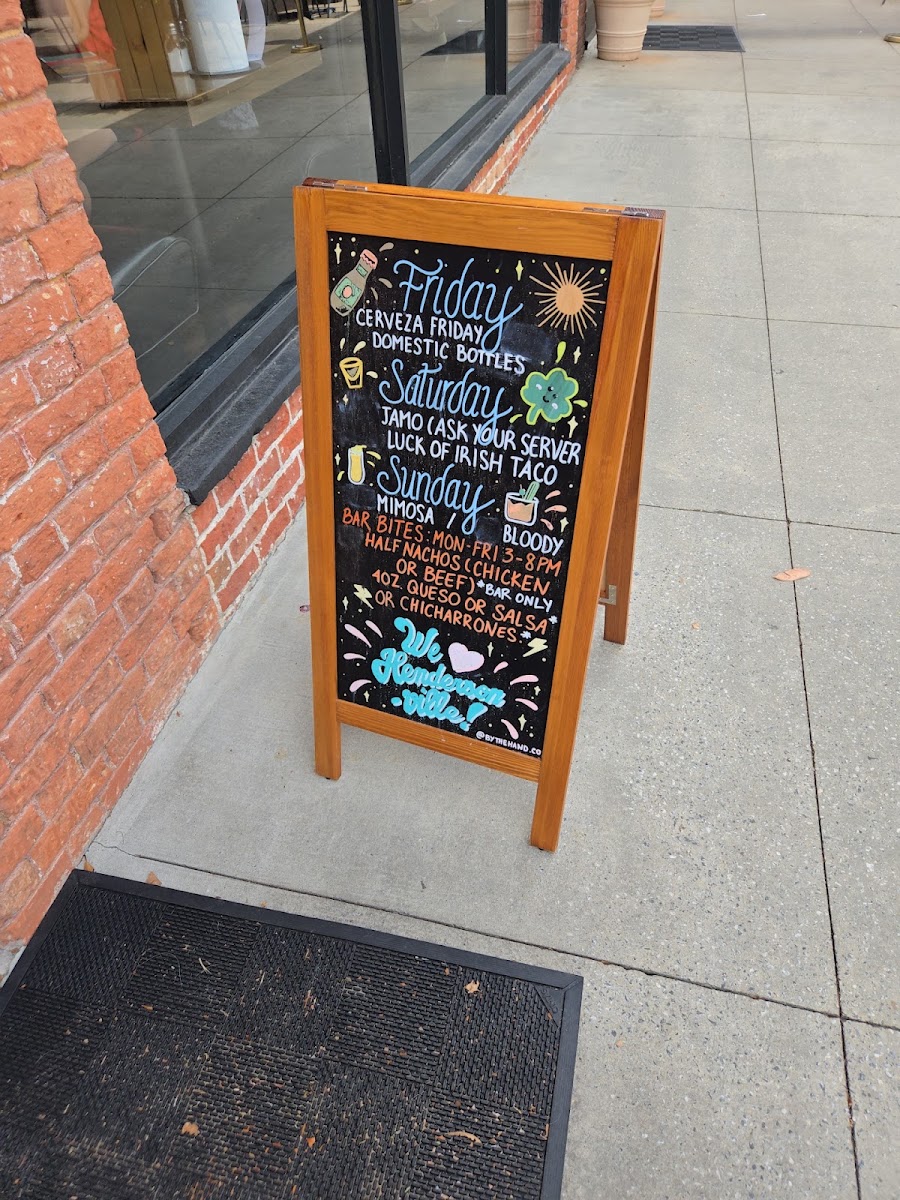 Friday
CERVEZA FRIDAY
DOMESTIC BOTTLES
Saturday
JAMO (ASK YOUR SERVER
LUCK OF IRISH TACO
Sunday
MIMOSA / BLOODY
BAR BITES: MON-FRI 3-8PM
HALF NACHOS (CHICKEN
OR BEEF) *BAR ONLY
4OZ QUESO OR SALSA*
OR CHICHARRONES*
We
Henderson
-ville!
@BYTHEHAND.CO